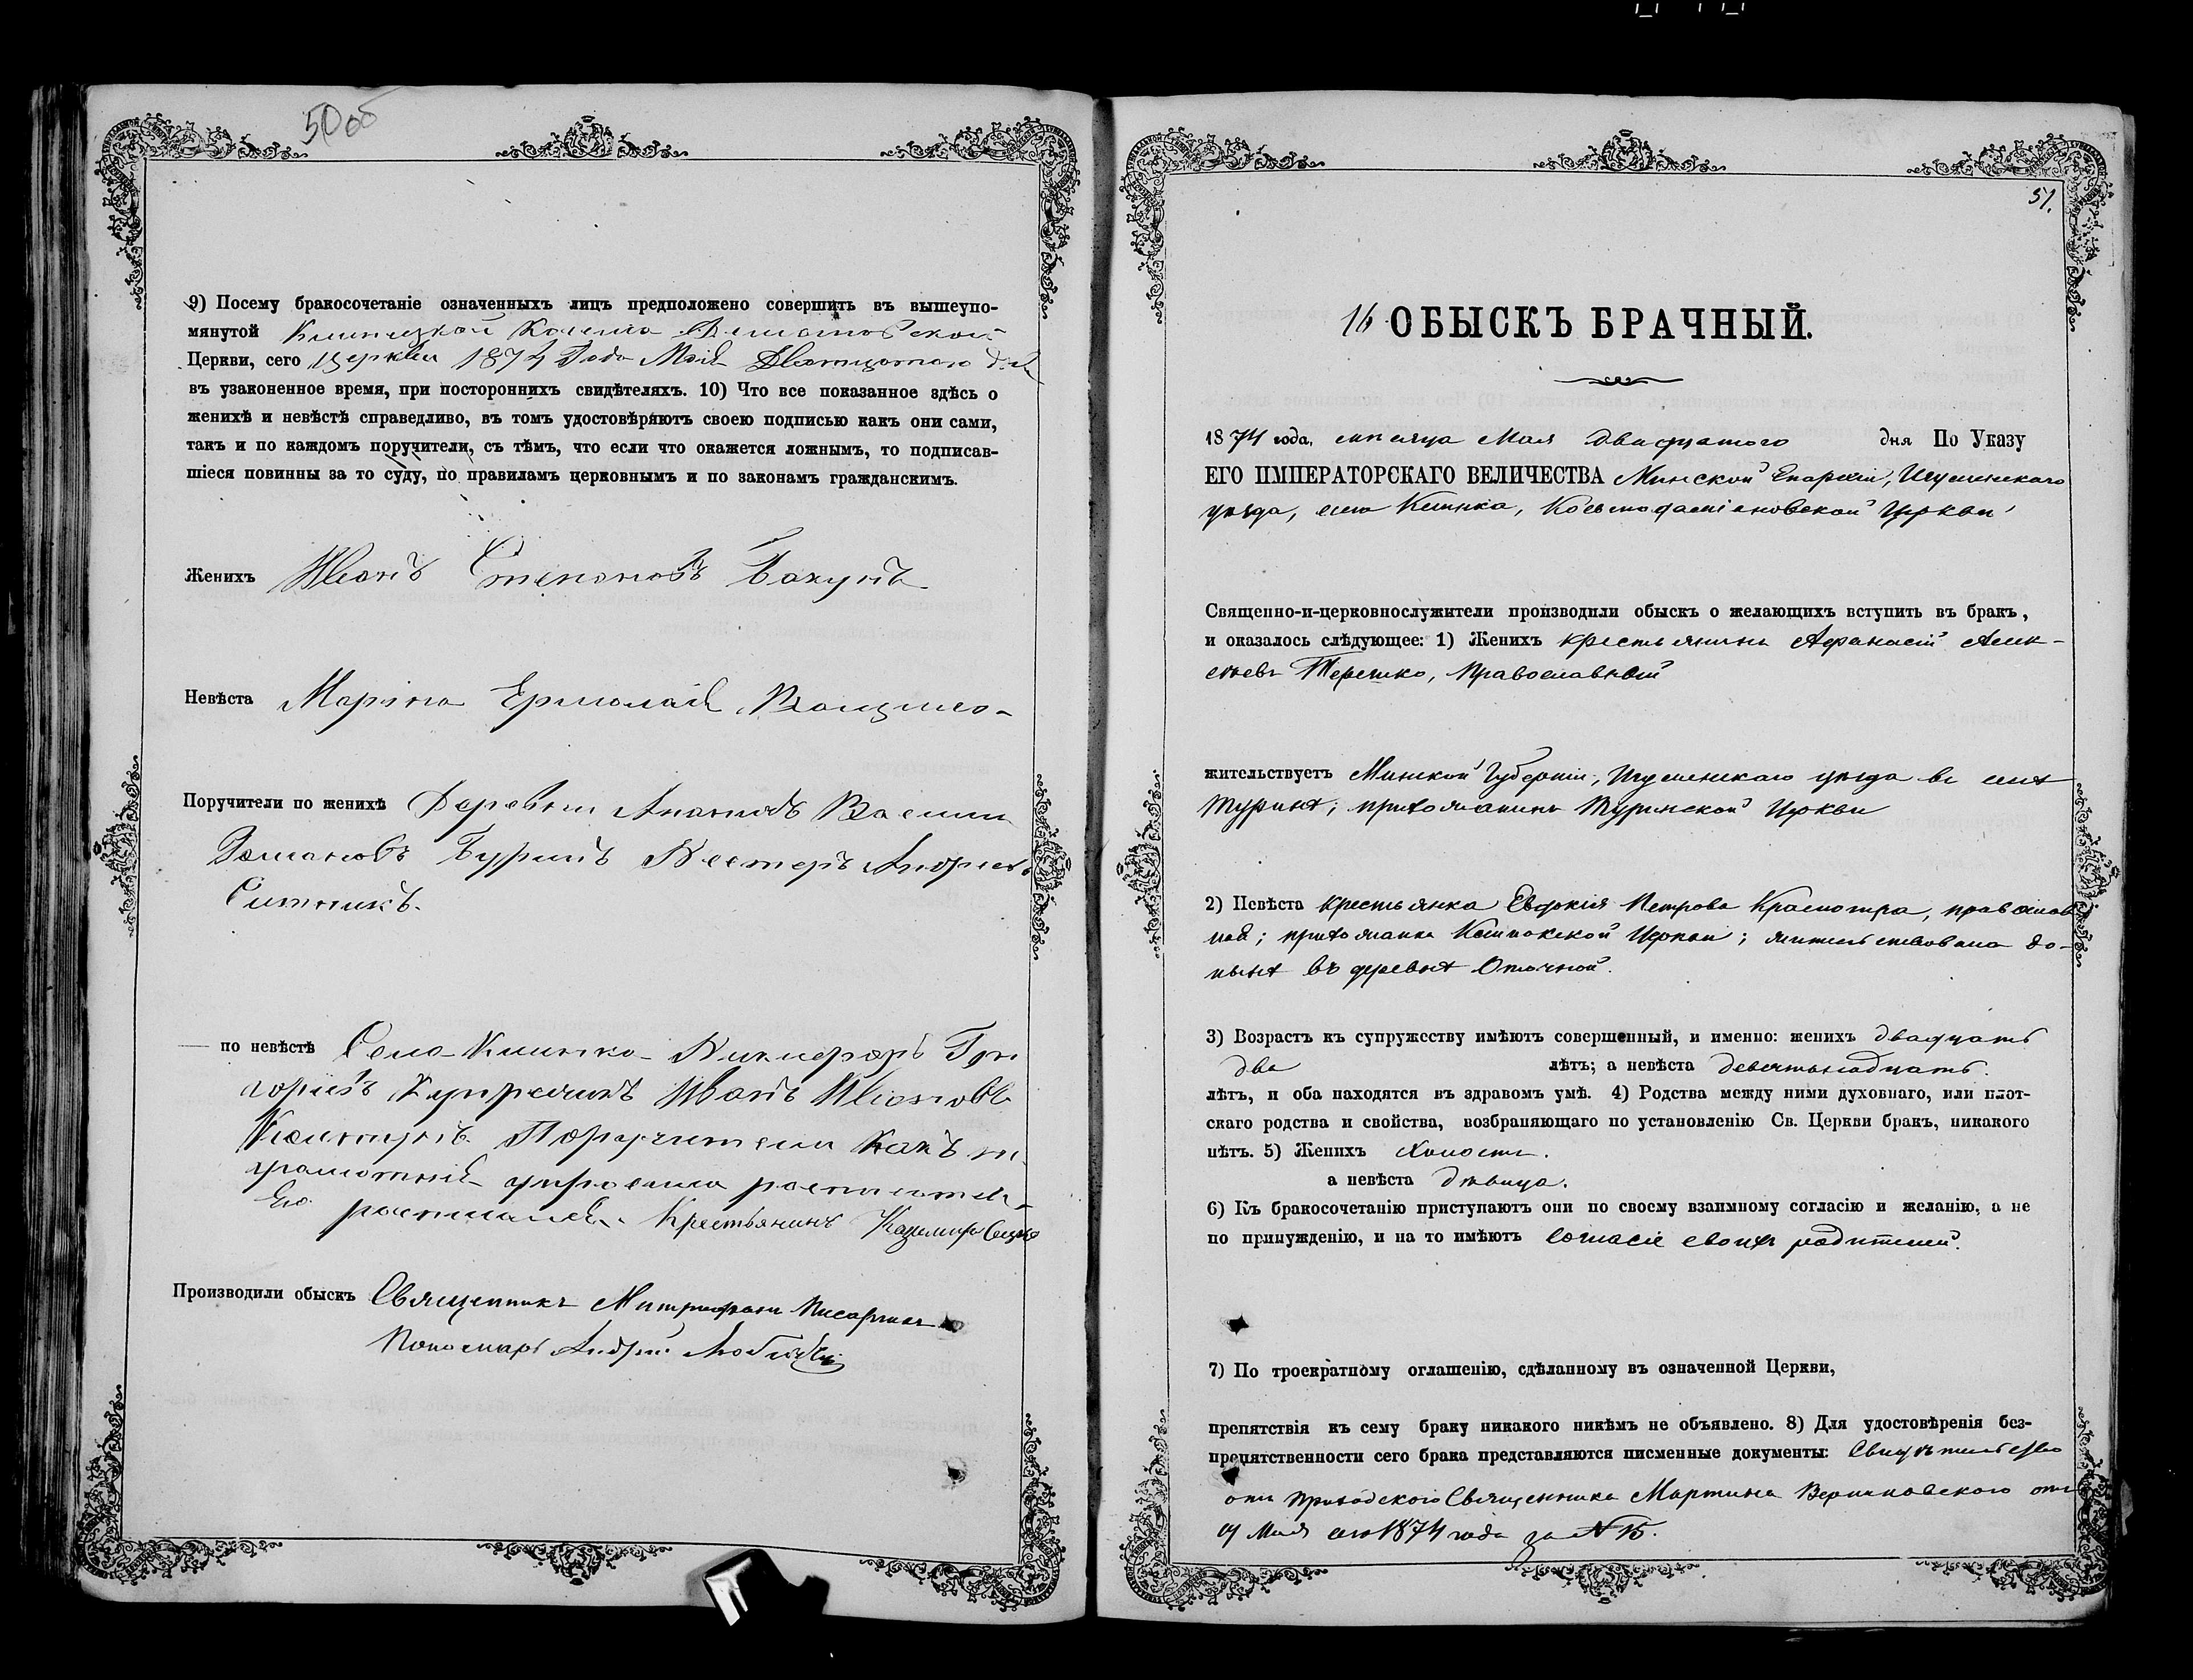 50 об
9) Посему бракосочетаніе означенныхъ лицъ предположено совершить въ вышеупо-
мянутой
Церкви, сего Церкви 1874 Года Мая Дватцотаго дня
въ узаконенное время, при постороннихъ свидѣтеляхъ. 10) Что все показанное здѣсь о
женихѣ и невѣстѣ справедливо, въ томъ удостовѣряютъ своею подписью какъ они сами,
такъ и по каждомъ поручители, съ тѣмъ, что если что окажется ложнымъ, то подписав-
шіеся повинны за то суду, по правиламъ церковнымъ и по законамъ гражданскимъ.
Женихъ Иванъ Степановъ Бакунъ
Невѣста Маріна Ермолай
Поручители по женихѣ Деревни
Романовъ Нестеръ Андреевъ
Ситникъ.
по невѣстѣ Села Клинка Никифоръ Гри
горіевъ Купречикъ Иванъ Ивановъ
Поручители какъ не
грамотній
Его росписался Крестьянинъ
Производили обыскъ Священникъ Митрофанъ
Пономарь Андрей
51.
16 ОБЫСКЪ БРАЧНЫЙ.
1874 года, мѣсяца Мая двадцатаго дня По Указу
ЕГО ИМПЕРАТОРСКАГО ВЕЛИЧЕСТВА Минской Епархіи, Игуменскаго
уѣзда, села Клинка, Космодаміановской Церкви
Священно-и-церковнослужители производили обыскъ о желающихъ вступить въ бракъ,
и оказалось слѣдующее: 1) Женихъ крестьянинъ Афанасій Алек-
сѣевъ Терешко, Православный
жительствуетъ Минской Губерніи, Игуменскаго уѣзда въ селѣ
Туринѣ; прихожанинъ Туринской Церкви
2) Невѣста крестьянка Евфкія Петрова православ
ная; прихожанка Клинокской Церкви; жительствовала до-
нынѣ въ деревнѣ
3) Возрастъ къ супружеству имѣютъ совершенный, и именно: женихъ двадцать
два лѣтъ; а невѣста девятьнадцать.
лѣтъ, и оба находятся въ здравомъ умѣ. 4) Родства между ними духовнаго, или плот-
скаго родства и свойства, возбраняющаго по установленію Св. Церкви бракъ, никакого
нѣтъ. 5) Женихъ холостъ.
а невѣста дѣвица.
6) Къ бракосочетанію приступаютъ они по своему взаимному согласію и желанію, а не
по принужденію, и на то имѣютъ согласіе своихъ родителей.
7) По троекратному оглашенію, сдѣланному въ означенной Церкви,
препятствія къ сему браку никакого никѣмъ не объявлено. 8) Для удостовѣренія без-
препятственности сего брака представляются писменные документы: Свидѣтельство
отъ приходскаго Священника Мартина отъ
9 Мая сего 1874 года за N 15.